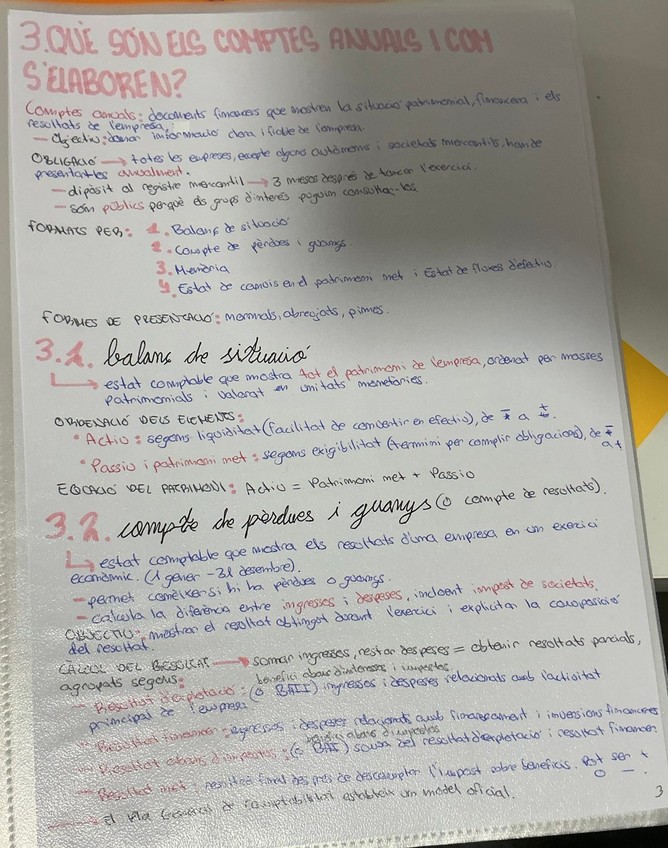 3. QUÈ SÓN ELS COMPTES ANUALS I COM
S'ELABOREN?
Comptes anuals: documents financers que mostren la situació patrimonial, financera i els
resultats de l'empresa.
— Objectiu: donar informació clara i fiable de l'empresa.
OBLIGACIÓ → totes les empreses, excepte alguns autònoms i societats mercantils, han de
presentar-les anualment.
— dipòsit al registre mercantil → 3 mesos després de tancar l'exercici.
— són públics perquè els grups d'interés puguin consultar-los.
FORMATS PER: 1. Balanç de situació
2. Compte de pèrdues i guanys.
3. Memòria
4. Estat de canvis en el patrimoni net i Estat de fluxos d'efectiu.
FORMES DE PRESENTACIÓ: normals, abreujats, pimes.
3.1. balanç de situació
→ estat comptable que mostra tot el patrimoni de l'empresa, ordenat per masses
patrimonials i valorat en unitats monetàries.
ORDENACIÓ DELS ELEMENTS:
• Actiu: segons liquiditat (facilitat de convertir en efectiu), de a
• Passiu i patrimoni net: segons exigibilitat (termini per complir obligacions), de
a +
EQUACIÓ DEL PATRIMONI: Actiu = Patrimoni net + Passiu
3.2. compte de pèrdues i guanys (o compte de resultats).
→ estat comptable que mostra els resultats d'una empresa en un exercici
econòmic. (1 gener - 31 desembre).
— permet conèixer si hi ha pèrdues o guanys.
— calcula la diferència entre ingressos i despeses, incloent impost de societats.
OBJECTIU: mostrar el resultat obtingut durant l'exercici i explicitar la composició
del resultat.
CÀLCUL DEL RESULTAT → sumar ingressos, restar despeses = obtenir resultats parcials,
agrupats segons:
benefici abans d'interessos i impostos
— Resultat d'explotació: (o BAII) ingressos i despeses relacionats amb l'activitat
principal de l'empresa
— Resultat financer: ingressos i despeses relacionats amb finançament i inversions financeres
benefici abans d'impostos
— Resultat abans d'impostos: (o BAI) suma del resultat d'explotació i resultat financer.
— Resultat net: resultat final després de descomptar l'impost sobre beneficis. Pot ser +
o —.
— el Pla General de Comptabilitat estableix un model oficial.
3